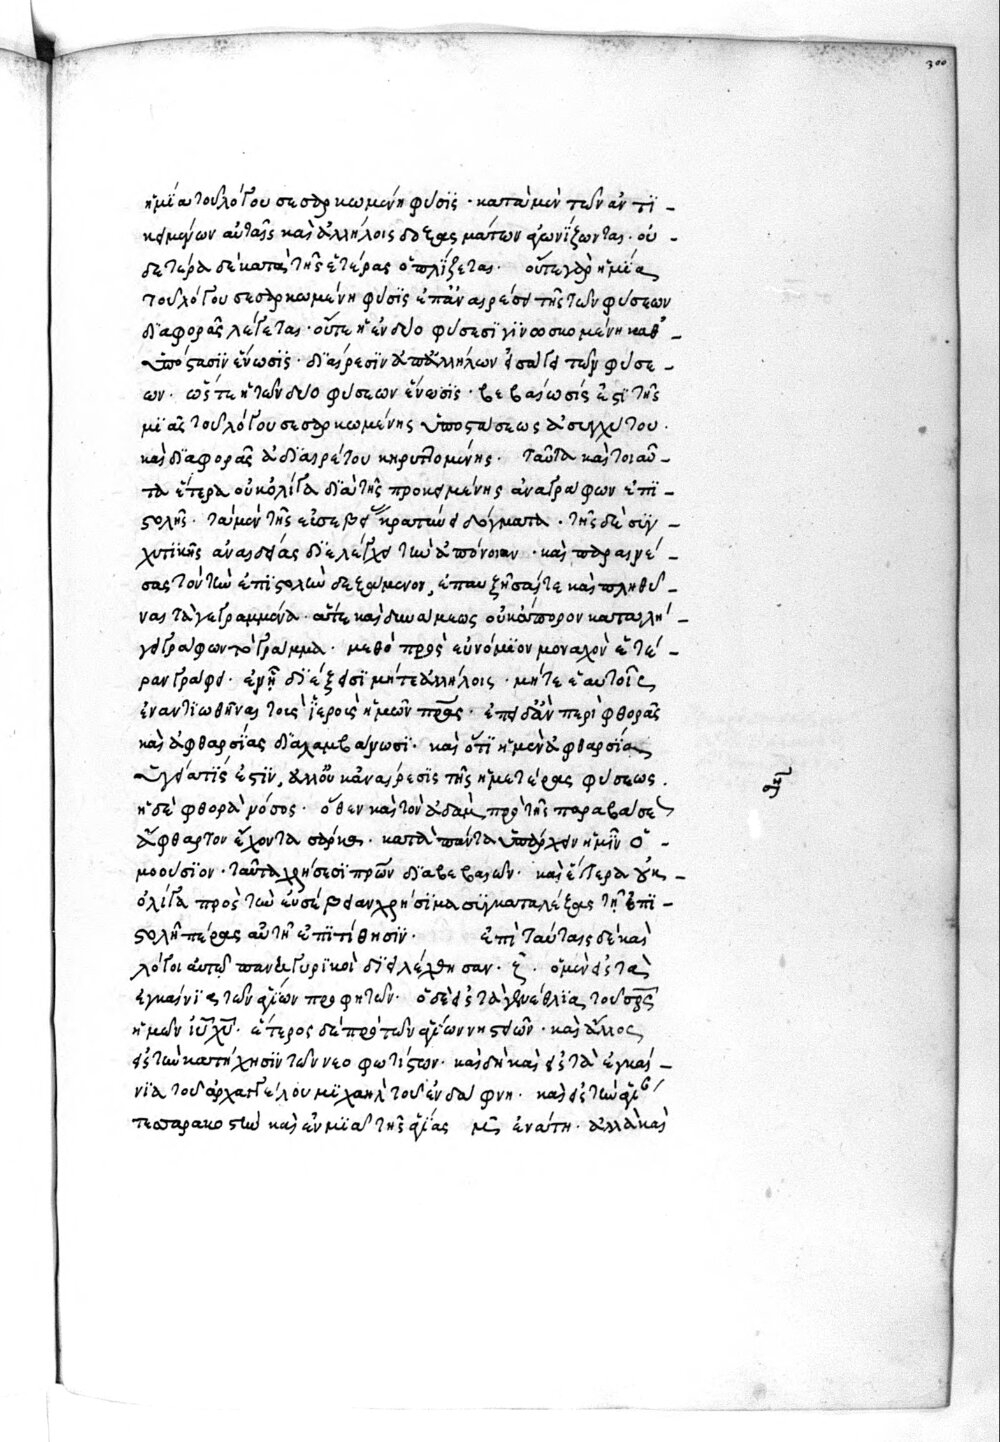 300
ἡ μία τοῦ λόγου σεσαρκωμένη φύσις · κατὰ μὲν τῶν ἀντι-
κειμένων αὐταῖς καὶ ἀλλήλοις δοξασμάτων ἀγωνίζονται · οὐ-
δετέρα δὲ κατὰ τῆς ἑτέρας ὁπλίζεται · οὔτε γὰρ ἡ μία
τοῦ λόγου σεσαρκωμένη φύσις ἐπ' ἀναιρέσει τῆς τῶν φύσεων
διαφορᾶς λέγεται · οὔτε ἡ ἐν δυο φύσεσι γινωσκομένη καθ'
ὑπόστασιν ἕνωσις · διαίρεσιν ἀπ' ἀλλήλων εἰσάγει τῶν φύσε-
ων · ὥστε ἡ τῶν δυο φύσεων ἕνωσις · βεβαίωσίς ἐστι τῆς
μιᾶς τοῦ λόγου σεσαρκωμένης ὑποστάσεως ἀσυγχύτου ·
καὶ διαφορᾶς ἀδιαιρέτου κηρυττομένης · ταῦτα καὶ τοιαῦ-
τα ἕτερα οὐκ ὀλίγα διὰ τῆς προκειμένης ἀναγράφων ἐπι-
στολῆς · τὰ μὲν τῆς εὐσεβείας κρατύνει δόγματα · τῆς δὲ συγ-
χυτικῆς ἀναιδείας διελέγχει τὴν ἀπόνοιαν · καὶ παραινέ-
σας τὸν τὴν ἐπιστολὴν δεξάμενον, ἐπαυξῆσαί τε καὶ πληθῦ-
ναι τὰ γεγραμμένα · ἅτε καὶ δυνάμεως οὐκ ἄπορον καταλή-
γει γράφων τὸ γράμμα · μεθ' ὃ πρὸς εὐνόμιον μοναχὸν ἑτέ-
ραν γράφει · ἐν ᾗ διέξεισι μήτε ἀλλήλοις · μήτε ἑαυτοῖς
ἐναντιωθῆναι τοὺς ἱεροὺς ἡμῶν πρας · ἐπειδὰν περὶ φθορᾶς
καὶ ἀφθαρσίας διαλαμβάνωσι · καὶ ὅτι ἡ μὲν ἀφθαρσία
ὑγεία τίς ἐστιν, ἀλλ' οὐκ ἀναίρεσις τῆς ἡμετέρας φύσεως ·
ἡ δὲ φθορὰ νόσος · ὅθεν καὶ τὸν ἀδὰμ πρὸ τῆς παραβάσε
ἄφθαρτον ἔχοντα σάρκα · κατὰ πάντα ὑπάρχειν ἡμῖν ὁ-
μοούσιον · ταῦτα χρήσεσι πρων διαβεβαιῶν · καὶ ἕτερα οὐκ
ὀλίγα πρὸς τὴν εὐσέβειαν χρήσιμα συγκαταλέξας τῇ ἐπι-
στολῇ πέρας αὐτῇ ἐπιτίθησιν · ἐπὶ ταύταις δὲ καὶ
λόγοι αὐτῷ πανηγυρικοὶ διειλέχθησαν · ζ · ὁ μὲν εἰς τὰ
ἐγκαίνια τῶν ἁγίων προφητῶν · ὁ δὲ εἰς τὰ γενέθλια τοῦ σρς
ἡμῶν ιυ χυ · ἕτερος δὲ πρὸ τῶν ἁγίων νηστειῶν · καὶ ἄλλος
εἰς τὴν κατήχησιν τῶν νεοφωτίστων · καὶ δὴ καὶ εἰς τὰ ἐγκαί-
νια τοῦ ἀρχαγγέλου μιχαὴλ τοῦ ἐν δάφνῃ · καὶ εἰς τὴν ἁγί
τεσσαρακοστὴν καὶ ἐν μιᾷ τῆς ἁγίας μς ἐνάτῃ · ἀλλὰ καὶ